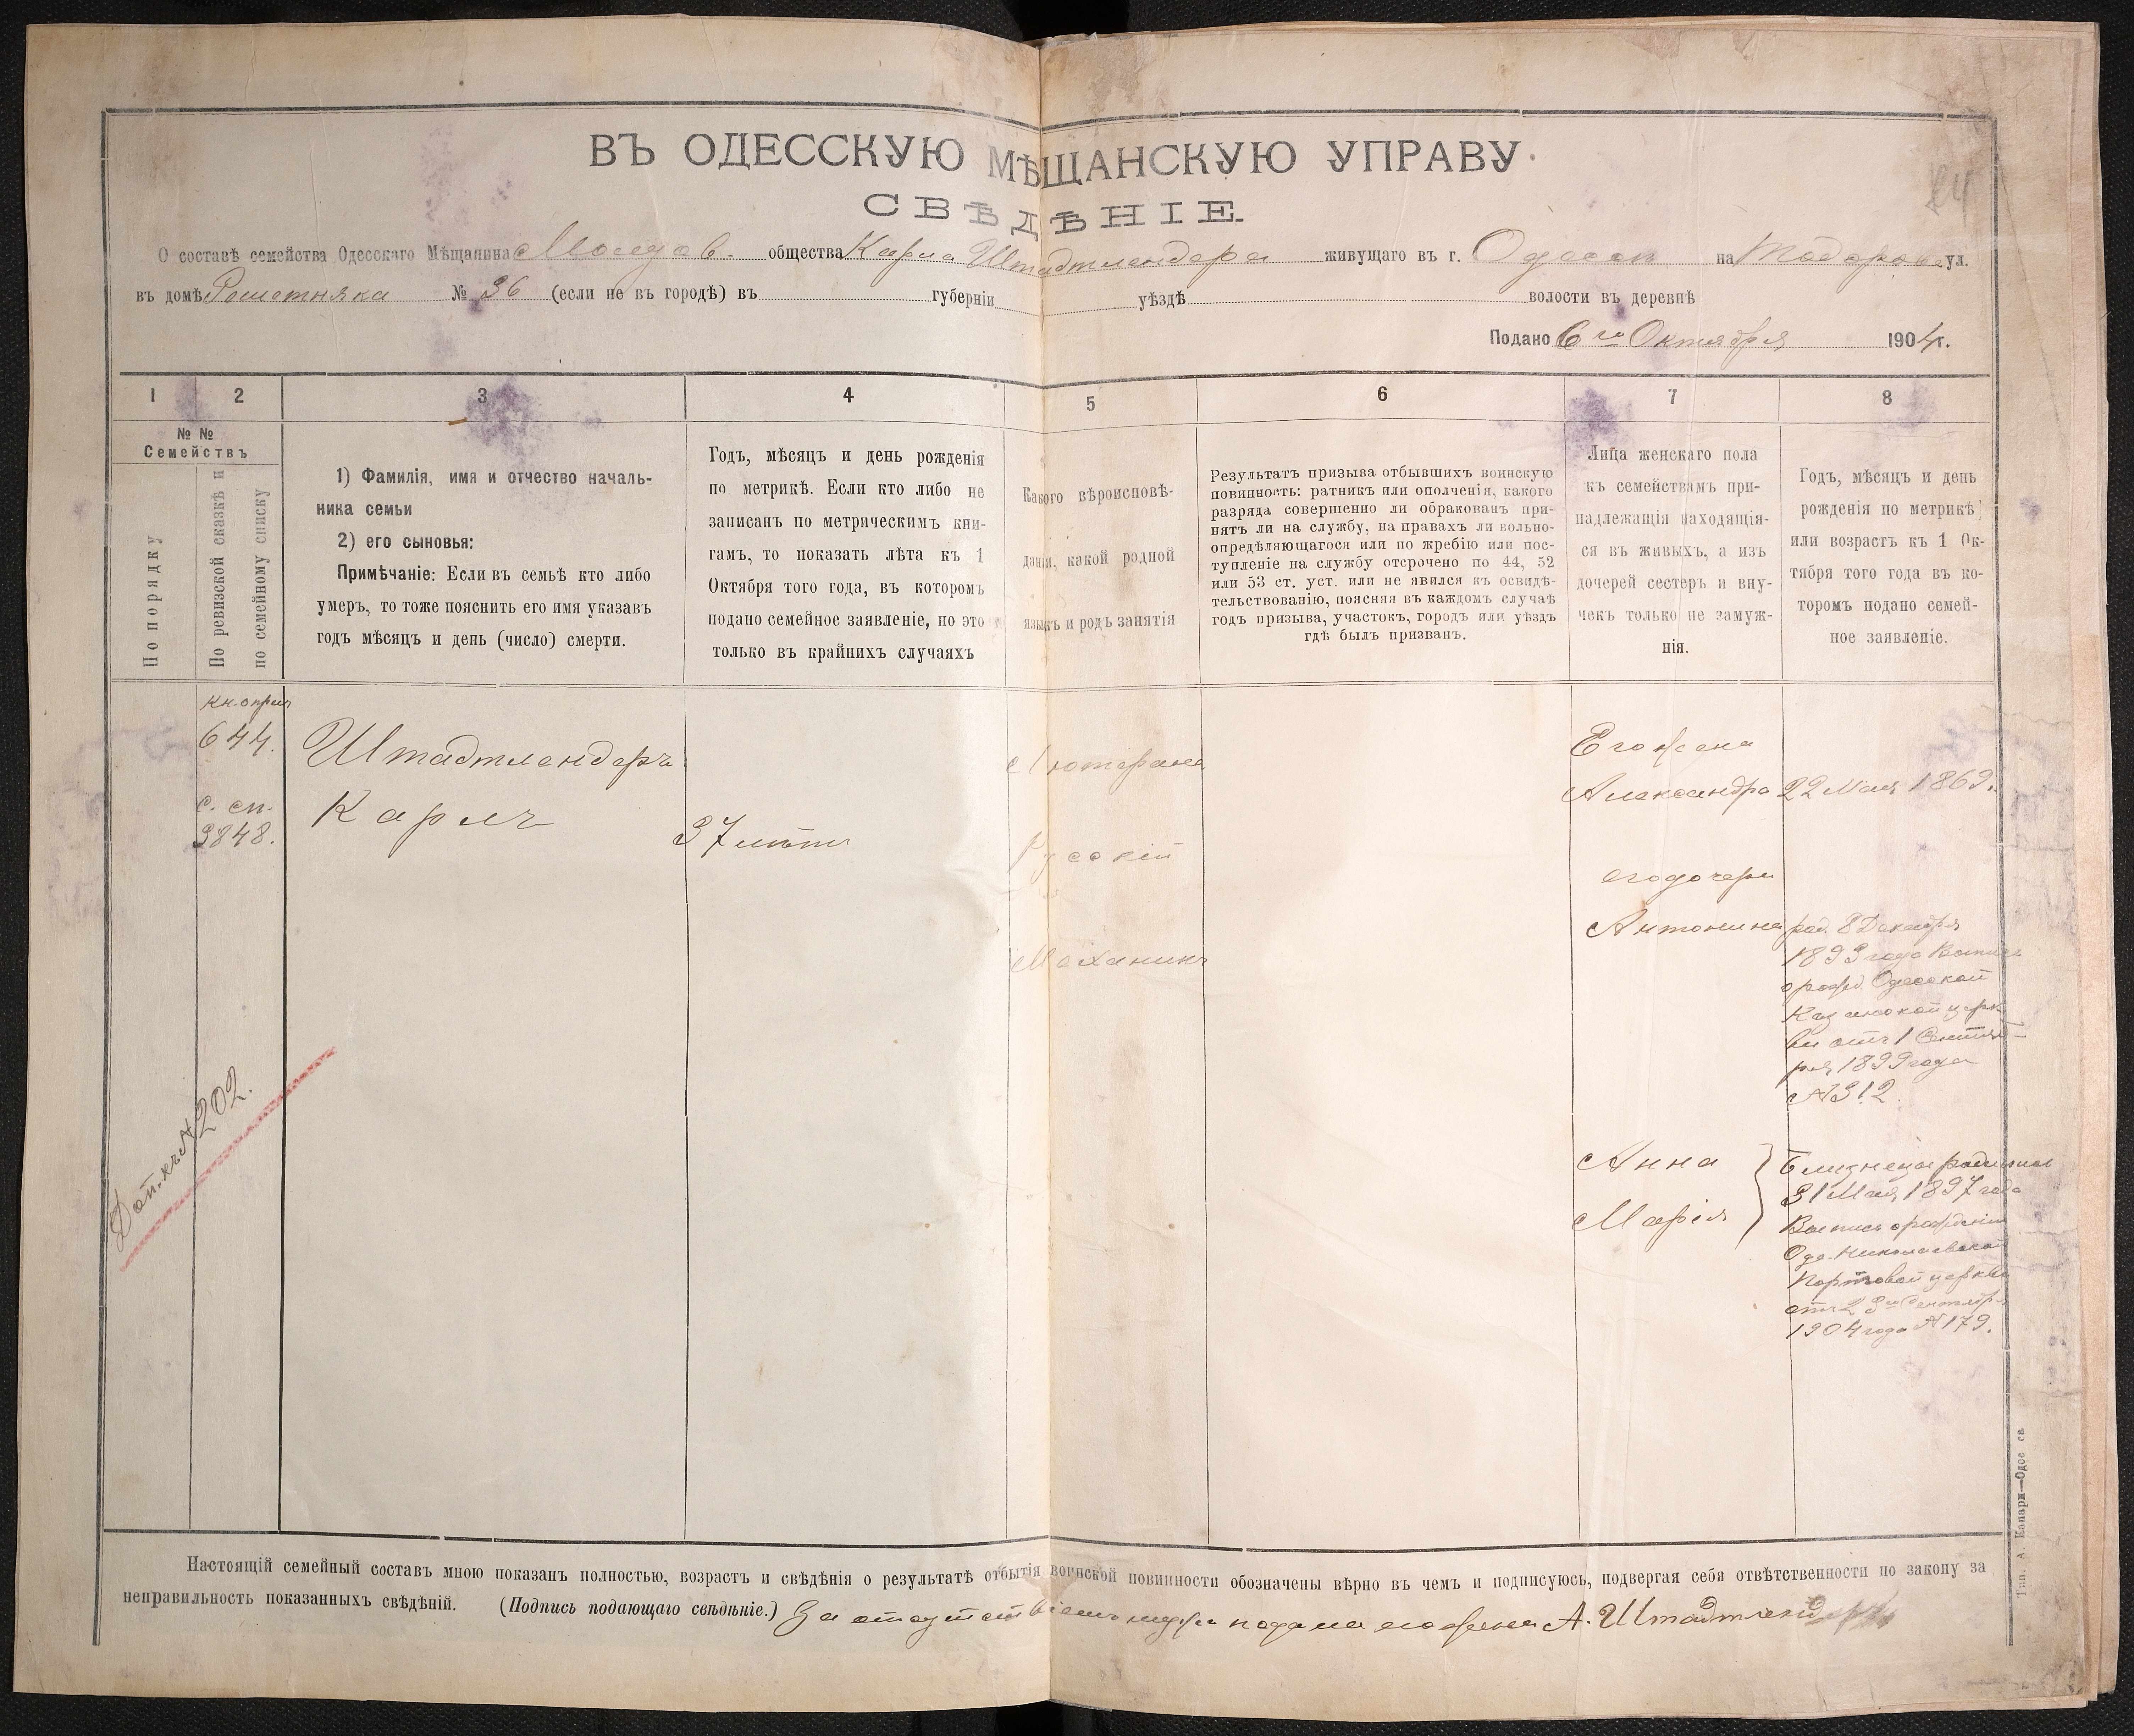 ВЪ ОДЕССКУЮ МѢЩАНСКУЮ УПРАВУ.
СВѢДѢНІЕ.
24
О составѣ семейства Одесскаго Мѣщанина Молдав. общества Карла Штадтлендера живущаго въ г. Одессѣ на Тодоров ул.
въ домѣ Решетняка № 36 (если не въ городѣ) въ губерніи уѣздѣ волости въ деревнѣ
Подано 6го Октября 1904г.
1 2 3 4 5 6 7 8
№ №
Семействъ
По порядку
По ревизской сказкѣ и
по семейному списку
1) Фамилія, имя и отчество началь-
ника семьи
2) его сыновья:
Примѣчаніе: Если въ семьѣ кто либо
умеръ, то тоже пояснить его имя указавъ
годъ мѣсяцъ и день (число) смерти.
Годъ, мѣсяцъ и день рожденія
по метрикѣ. Если кто либо не
записанъ по метрическимъ кни-
гамъ, то показать лѣта къ 1
Октября того года, въ которомъ
подано семейное заявленіе, но это
только въ крайнихъ случаяхъ
Какого вѣроисповѣ-
данія, какой родной
языкъ и родъ занятія
Результатъ призыва отбывшихъ воинскую
повинность: ратникъ или ополченія, какого
разряда совершенно ли обракованъ при-
нятъ ли на службу, на правахъ ли вольно-
опредѣляющагося или по жребію или пос-
тупленіе на службу отсрочено по 44, 52
или 53 ст. уст. или не явился къ освидѣ-
тельствованію, поясняя въ каждомъ случаѣ
годъ призыва, участокъ, городъ или уѣздъ
гдѣ былъ призванъ.
Лица женскаго пола
къ семействамъ при-
надлежащія находящія-
ся въ живыхъ, а изъ
дочерей сестеръ и вну-
чекъ только не замуж-
нія.
Годъ, мѣсяцъ и день
рожденія по метрикѣ
или возрастъ къ 1 Ок-
тября того года въ ко-
торомъ подано семей-
ное заявленіе.
644.
с. сп.
3848.
Штадтлендеръ
Карлъ
37 лѣтъ
Лютеране
Русскій
Механикъ
Его жена
Александра 22 Мая 1869.
его дочери
Антонина
род. 8 Декабря
1893 года Выпись
о рожд. Одесской
Казанской церк
ви отъ 1 Сентяб
ря 1899 года
№312.
Анна
Марія
Близнецы родились
31 Мая 1897 года
Выпись о рожденіи
Оде. Николаевской
Портовой церкви
отъ 23го Сентябр
1904 года №179.
Доп. къ №202.
Настоящій семейный составъ мною показанъ полностью, возрастъ и свѣдѣнія о результатѣ отбытія воинской повинности обозначены вѣрно въ чемъ и подписуюсь, подвергая себя отвѣтственности по закону за
неправильность показанныхъ свѣдѣній. (Подпись подающаго свѣдѣніе.) За отсутствіемъ мужа подала его жена А. Штадтлендеръ
Тип. А. Капари—Одес св